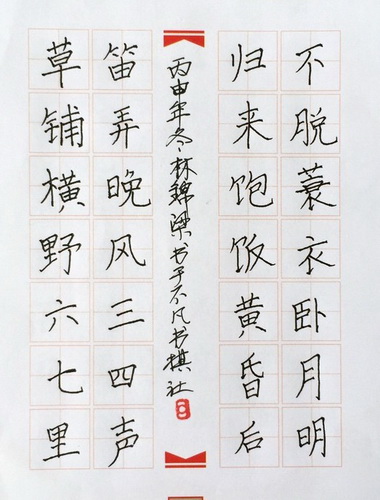 草铺横野六七里
笛弄晚风三四声
归来饱饭黄昏后
不脱蓑衣卧月明
丙申年冬林锦梁书于不凡书棋社